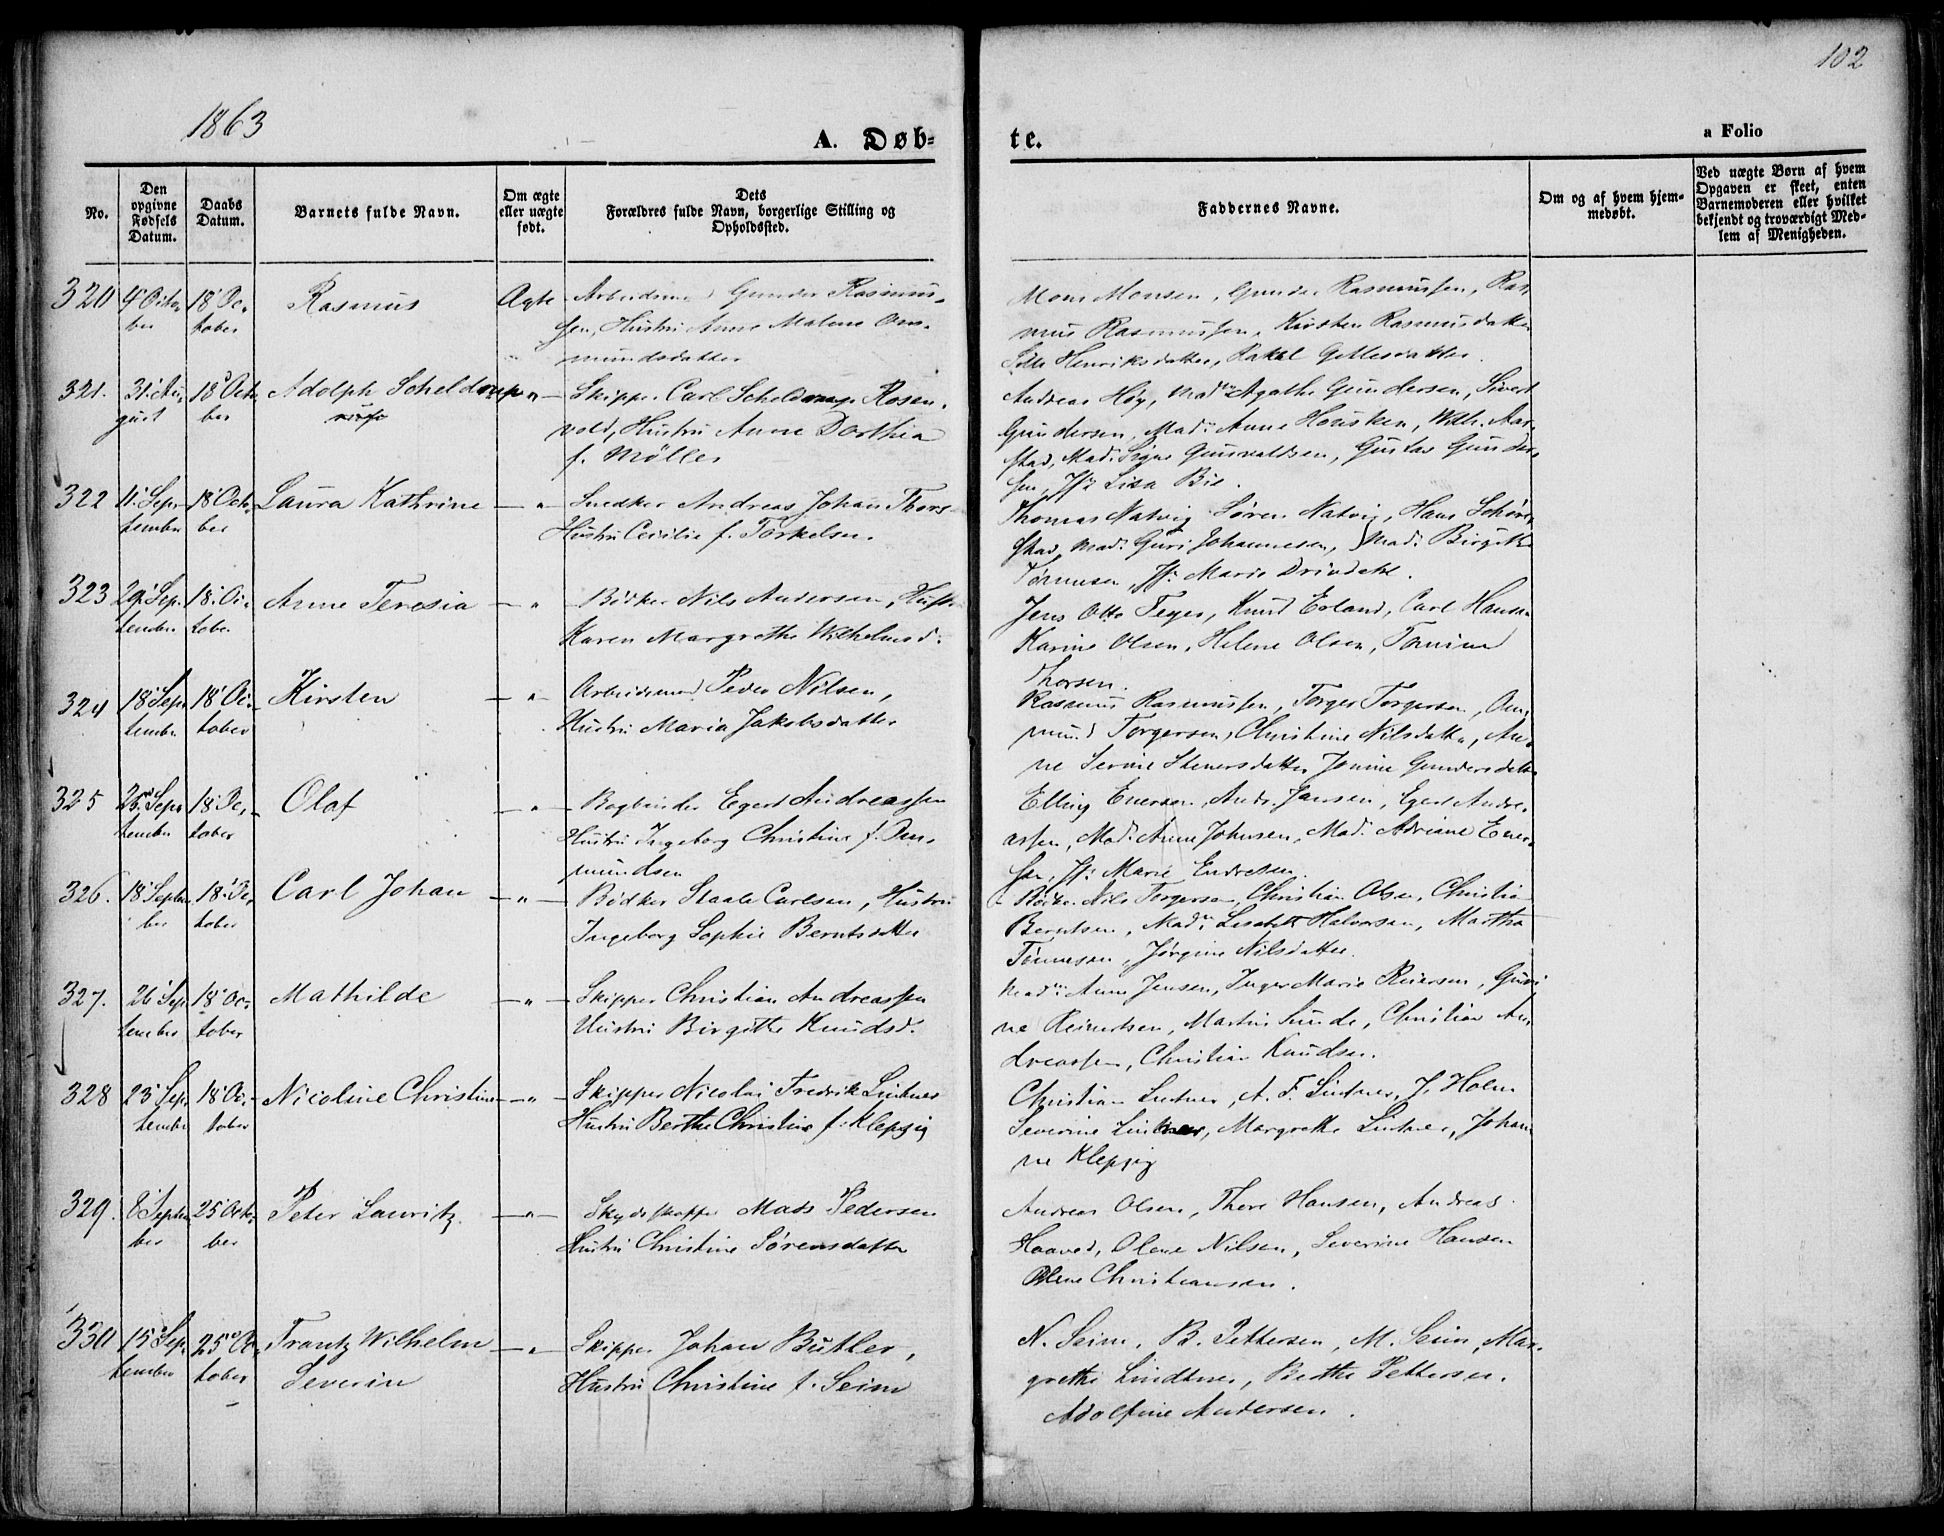 102
1863
A. Døb-
te.
a Folio
No.
Den opgivne Fødsels Datum.
Daabs Datum.
Barnets fulde Navn.
Om ægte eller uægte født.
Dets Forældres fulde Navn, borgerlige Stilling og Opholdssted.
Faddernes Navne.
Om og af hvem hjemmedøbt.
Ved uægte Børn af hvem Opgaven er skeet, enten Barnemoderen eller hvilket bekjendt og troværdigt Medlem af Menigheden.
320 4 Octo- 18 Oc- Rasmus Ægte Gunder Rasmus-
ber tober sen, Hustru Anne Malene Om-
mundsdatter
Mons Monsen, Gunder Rasmussen, Ras
mus Rasmussen, Kirsten Rasmusdatter
Henriksdatter, Rakel
321. 31 Au- 18 Octo Adolph Scheldrup — " — Skipper Carl Scheldrup Rosen-
gust ber vold, Hustru Anne Dorthea
f. Møller
Andreas Høy, Mad: Agathe Gundersen, Sivert
Gundersen, Mad: Anne Housken, Wilh. Aar-
stad, Mad: Signe Gunvaldsen, Gustav Gunder-
sen, Jfr Lisa
322 11 Sep- 18 Octo- Laura Kathrine — " Snedker Andreas Johan Thors
tember ber Hustru Cecilie f. Torkelsen.
Thomas Natvig, Søren Natvig, Hans
stad, Mad: Guri Johannesen, Mad: Birgitte
Tønnesen, Jfr: Marie
323 29 Sep- 18 Oc- Anne Teresia — " Bødker Nils Andersen, Hustru
tember tober Karen Margrethe Wilhelmsd:
Jens Otto Feyer, Knud Erland, Carl Hansen
Karine Olsen, Helene Olsen, Tomine
Thorsen.
324 18 Sep- 18 Oc- Kirsten — " Arbeidsmand Peder Nilsen,
tember tober Hustru Maria Jakobsdatter
Rasmus Rasmussen, Torger Torgersen, Om-
mund Torgersen, Christine Nilsdatter, An-
ne Serine Stenersdatter, Jonine Gundersdatter
325 26 Sep- 18 Oc- Olaf — " — Bogbinder Egert Andreassen
tember tober Hustru Ingeborg Christine f. Om-
mundsen
Elling Enersen, Andr. Jansen, Egert Andre-
assen, Mad: Anne Johnsen, Mad: Adriane Ener-
sen, Jfr: Marie Endresen.
326. 18 Septem 18 Oc- Carl Johan — " — Bødker Staale Carlsen, Hustru
ber tober Ingeborg Sophie Berntsdatter
Bødker Nils Torgersen, Christian Olsen, Christian
Berntsen, Mad: Lisabeth Halvorsen, Martha
Tønnesen, Jørgine Nilsdatter.
327. 26 Sep- 18 Oc- Mathilde — " — Skipper Christian Andreassen
tember tober Hustru Birgitte Knudsd.
Mad: Anne Jensen, Inger Marie Reiersen, Guri
ne Reinertsen, Martin Sunde, Christian An-
dreassen, Christian Knudsen.
328 23 Sep- 18 Oc- Nicoline Christine — " — Skipper Nicolai Fredrik Lintner
tember tober Hustru Berthe Christine f. Klepzig
Christian Lintner, A. F. Lintner, J. Holm
Severine Lintner, Margrethe Lintner, Johan
ne Klepzig
329. 8 Septem 25 Octo- Peter Lauritz — " — Mads Pedersen
ber ber Hustru Christine Sørensdatter
Andreas Olsen, Thore Hansen, Andreas
Haaved, Olene Nilsen, Severine Hansen
Olene Christiansen.
330 15 Sep- 25 Oc- Frantz Wilhelm — " — Skipper Johan Butler,
tember tober Severin Hustru Christine f. Seim
N. Seim, B. Pettersen, M. Seim, Mar-
grethe Lindtner, Berthe Pettersen.
Adolfine Andersen.